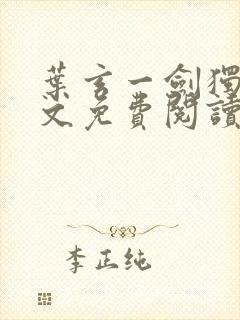 葉玄一劍獨
文免費閱讀
李正纯